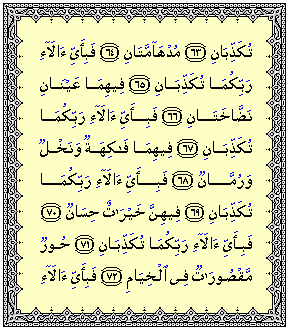 تُكَذِّبَانِ ۝٦٣ مُدْهَآمَّتَانِ ۝٦٤ فَبِأَىِّ ءَالَآءِ
رَبِّكُمَا تُكَذِّبَانِ ۝٦٥ فِيهِمَا عَيْنَانِ
نَضَّاخَتَانِ ۝٦٦ فَبِأَىِّ ءَالَآءِ رَبِّكُمَا
تُكَذِّبَانِ ۝٦٧ فِيهِمَا فَـٰكِهَةٌ وَنَخْلٌ
وَرُمَّانٌ ۝٦٨ فَبِأَىِّ ءَالَآءِ رَبِّكُمَا
تُكَذِّبَانِ ۝٦٩ فِيهِنَّ خَيْرَٰتٌ حِسَانٌ ۝٧٠
فَبِأَىِّ ءَالَآءِ رَبِّكُمَا تُكَذِّبَانِ ۝٧١ حُورٌ
مَّقْصُورَٰتٌ فِى ٱلْخِيَامِ ۝٧٢ فَبِأَىِّ ءَالَآءِ